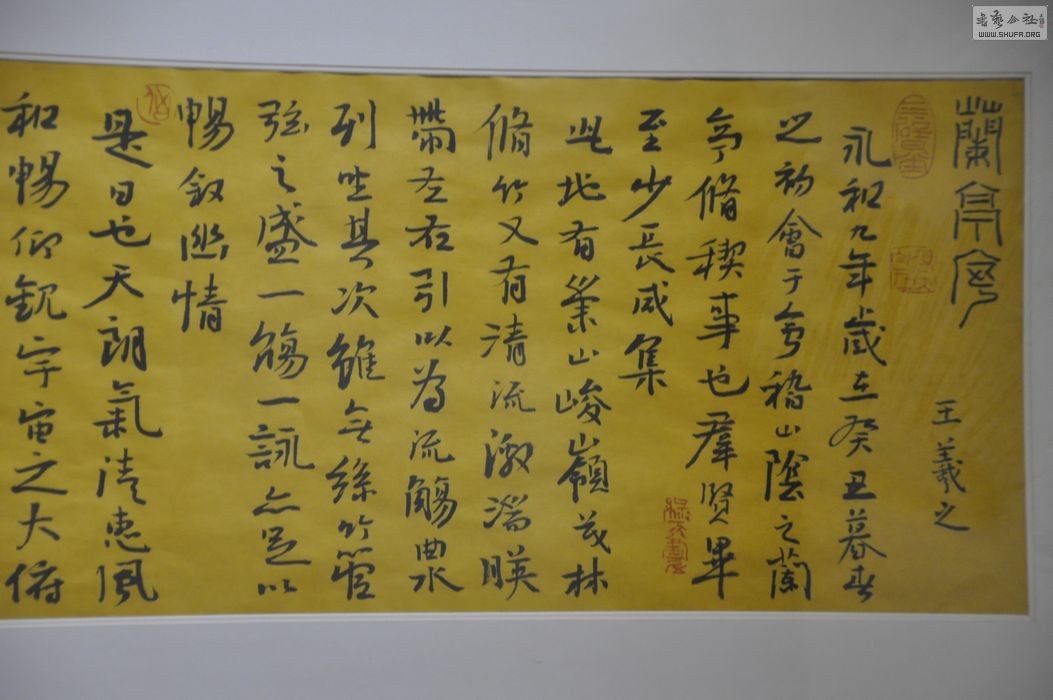 蘭亭序
王羲之
永和九年歲在癸丑暮春
之初會于會稽山陰之蘭
亭脩稧事也羣賢畢
至少長咸集
此地有崇山峻嶺茂林
脩竹又有清流激湍暎
帶左右引以為流觴曲水
列坐其次雖無絲竹管
弦之盛一觴一詠亦足以
暢敘幽情
是日也天朗氣清惠風
和暢仰觀宇宙之大俯
書藝公社
WWW.SHUFA.ORG